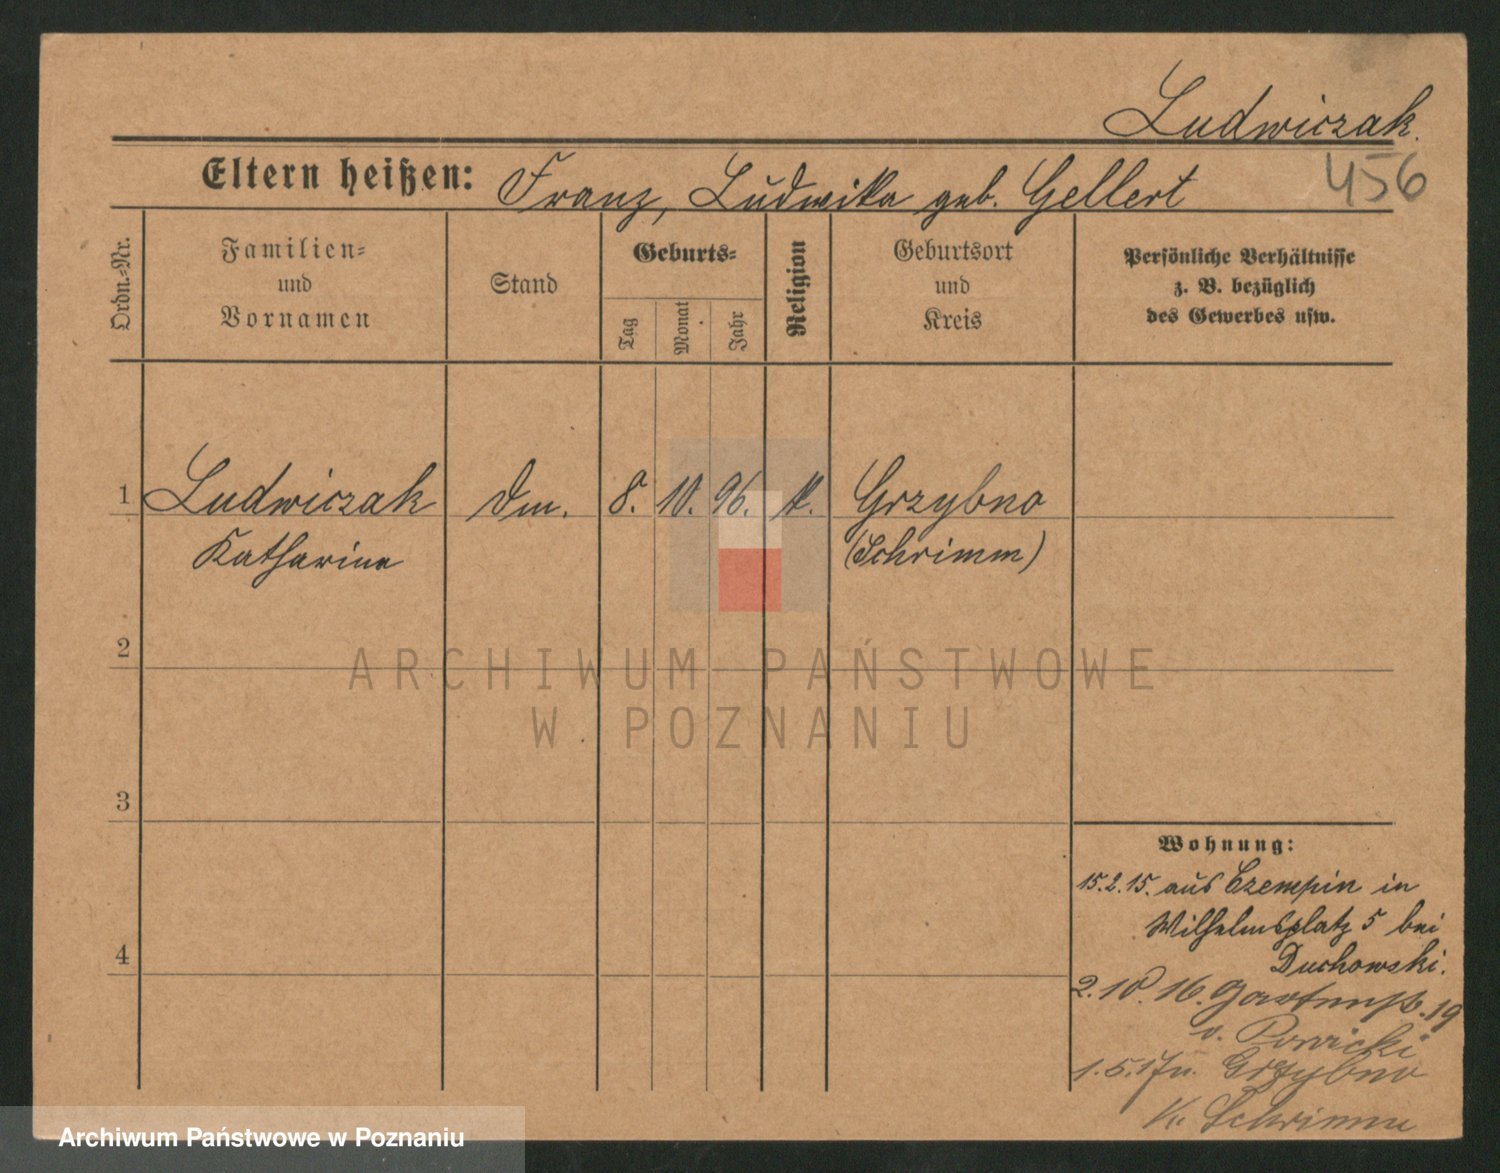 Ludwiczak.
456
Eltern heißen: Franz, Ludwika geb. Gellert
Ordn.-Nr.
Familien-
und
Vornamen
Stand
Geburts-
Tag
Monat
Jahr
Religion
Geburtsort
und
Kreis
Persönliche Verhältnisse
z. B. bezüglich
des Gewerbes usw.
1 Ludwiczak Dm. 8. 10. 96. k. Grzybno
Katharina (Schrimm)
2
3
4
Wohnung:
15.2.15. aus Czempin in
Wilhelmsplatz 5 bei
Duchowski.
2.10.16. Gartenstr. 19
1.5.17 n. Grzybno
K. Schrimm
ARCHIWUM PAŃSTWOWE
W POZNANIU
Archiwum Państwowe w Poznaniu